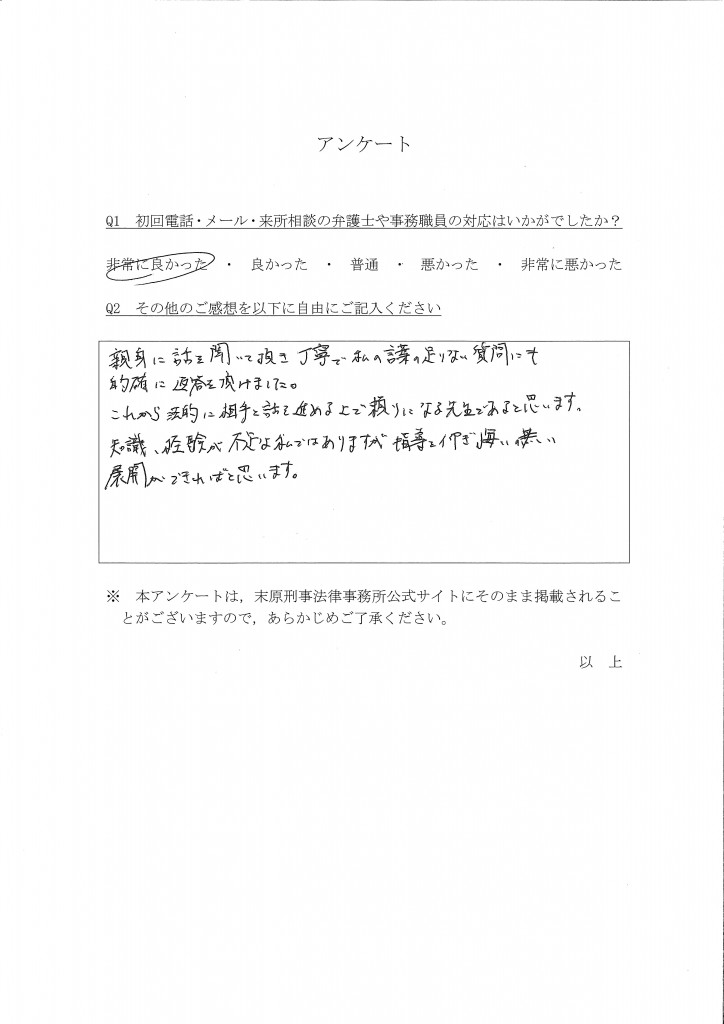 アンケート
Q1 初回電話・メール・来所相談の弁護士や事務職員の対応はいかがでしたか？
非常に良かった ・ 良かった ・ 普通 ・ 悪かった ・ 非常に悪かった
Q2 その他のご感想を以下に自由にご記入ください
親身に話を聞いて頂き丁寧で私の言葉の足りない質問にも
的確に返答を頂けました。
これから法的に相手と話を進める上で頼りになる先生であると思います。
知識、経験が不足な私ではありますが指導を仰ぎ悔いの無い
展開ができればと思います。
※ 本アンケートは，末原刑事法律事務所公式サイトにそのまま掲載されるこ
とがございますので，あらかじめご了承ください。
以 上